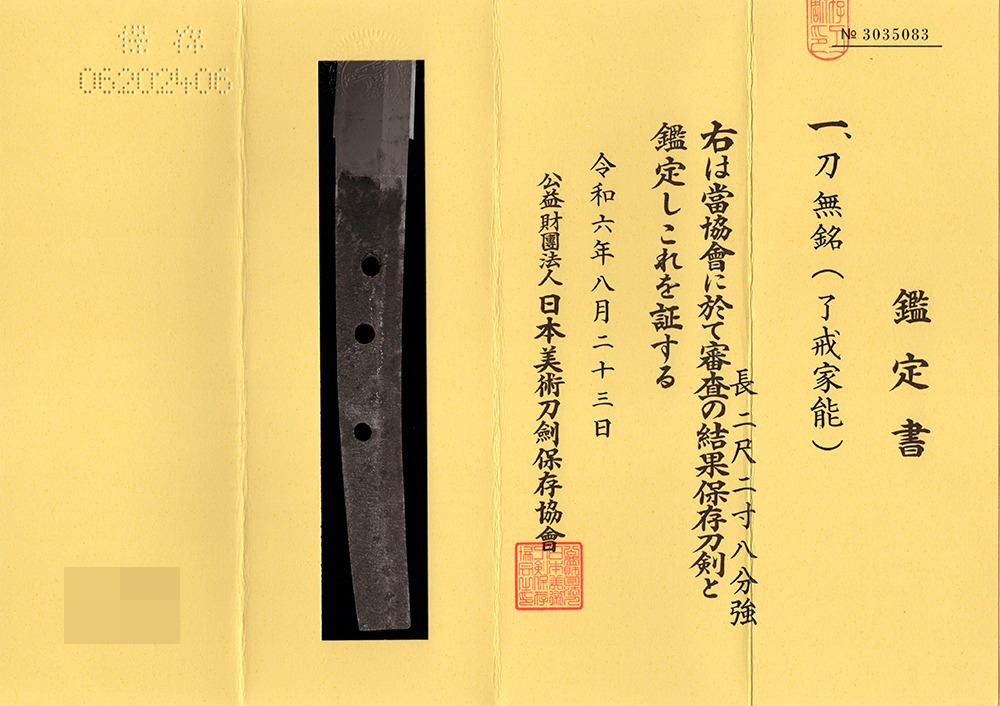 № 3035083
鑑定書
一、刀無銘(了戒家能)
長二尺二寸八分強
右は當協會に於て審査の結果保存刀剣と
鑑定しこれを証する
令和六年八月二十三日
公益財團法人日本美術刀劍保存協會
保存
06202406